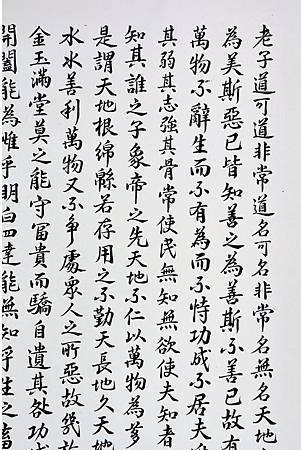 老子道可道非常道名可名非常名無名天地之
為美斯惡已皆知善之為善斯不善已故有
萬物不辭生而不有為而不恃功成不居夫唯
其弱其志強其骨常使民無知無欲使夫知者
知其誰之子象帝之先天地不仁以萬物為芻
是謂天地根綿綿若存用之不勤天長地久天
水水善利萬物又不爭處眾人之所惡故幾於
金玉滿堂莫之能守富貴而驕自遺其咎功成
開闔能為雌乎明白四達能無知乎生之畜